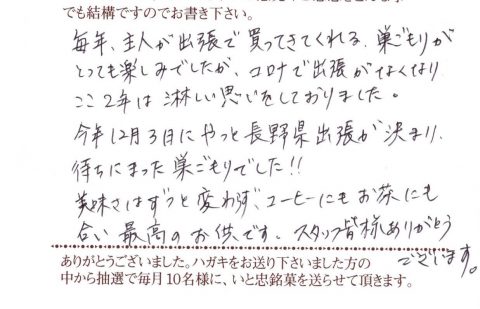 でも結構ですのでお書き下さい。
毎年、主人が出張で買ってきてくれる、巣ごもりが
とっても楽しみでしたが、コロナで出張がなくなり
ここ2年は淋しい思いをしておりました。
今年12月3日にやっと長野県出張が決まり、
待ちにまった巣ごもりでした!!
美味さはずっと変わらず、コーヒーにもお茶にも
合い最高のお供です。スタッフ皆様ありがとう
ございます。
ありがとうございました。ハガキをお送り下さいました方の
中から抽選で毎月10名様に、いと忠銘菓を送らせて頂きます。